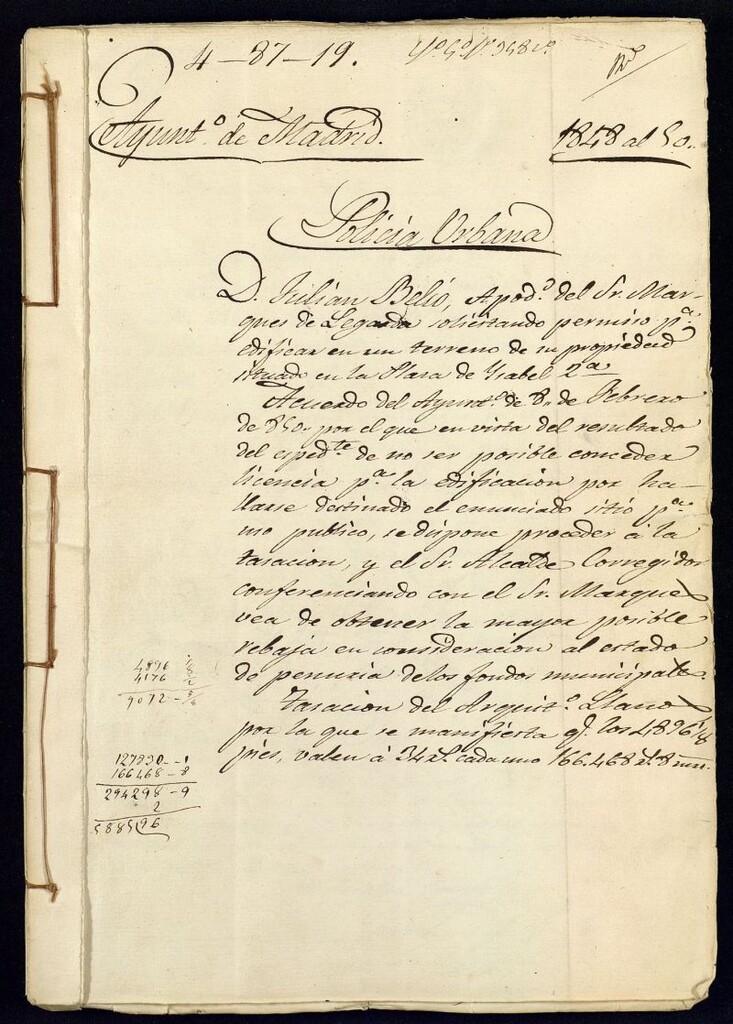 4-87-19.
Ayunt.º de Madrid.
1848 al 50.
Policia Urbana
D. Julian Belió, Apod.º del Sr. Mar-
ques de Legarda solicitando permiso p.ª
edificar en un terreno de su propiedad
situado en la Plaza de Ysabel 2.ª
Acuerdo del Ayunt.º de 8, de Febrero
de 850, por el que en vista del resultado
del esped.te de no ser posible conceder
licencia p.ª la edificacion por ha-
llarse destinado el enunciado sitio p.ª
uso publico, se dispone proceder á la
tasacion, y el Sr. Alcalde Corregidor
conferenciando con el Sr. Marques
vea de obtener la mayor posible
rebaja en consideracion al estado
de penuria de los fondos municipales.
Tasacion del Arquit.º Llano
por la que se manifiesta q. los 4896 1/8
pies, valen á 34 rs. cada uno 166.468 rs. 8 mrs.
4896 1/8
4176 1/2
9072 - 5/8
127830 - 1
166468 - 8
294298 - 9
2
588596